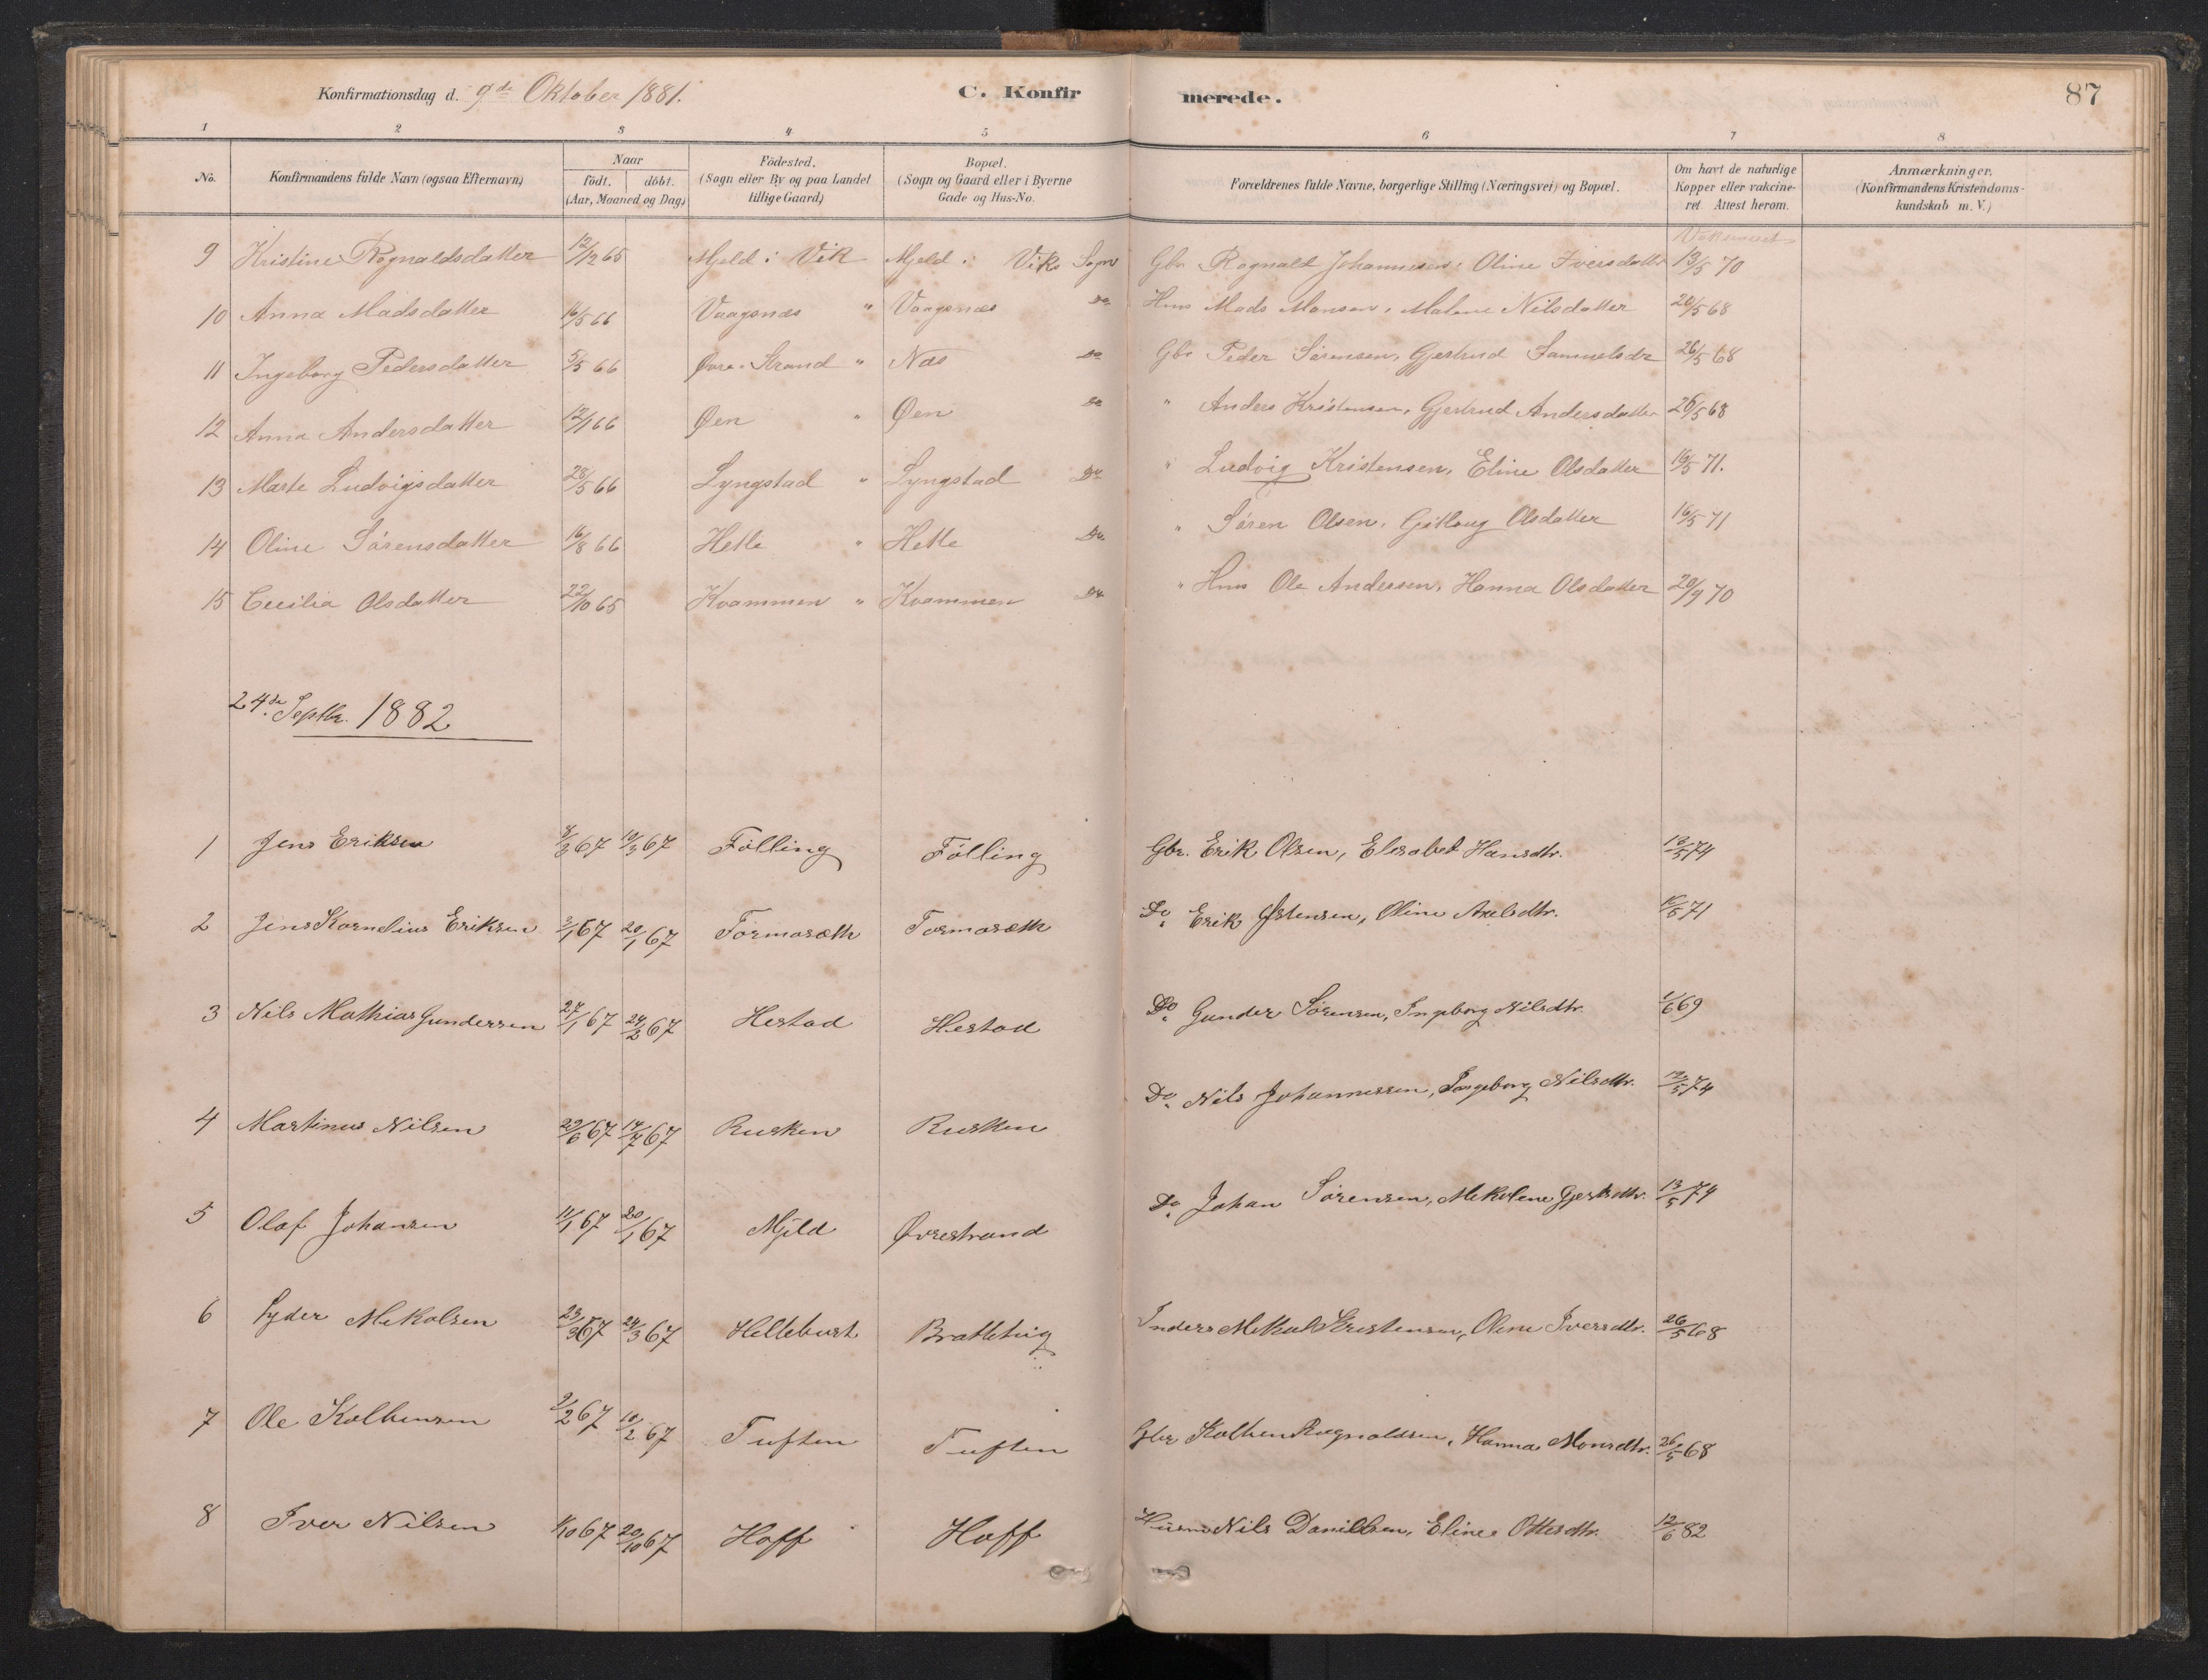 Konfirmationsdag d. 9de Oktober 1881. C. Konfirmerede. 87
1 2 3 4 5 6 7 8
No. Konfirmandens fulde Navn (ogsaa Efternavn) Naar født. døbt. (Aar, Maaned og Dag) Födested. (Sogn eller By og paa Landet tillige Gaard) Bopæl. (Sogn og Gaard eller i Byerne Gade og Hus-No. Forældrenes fulde Navne, borgerlige Stilling (Næringsvei) og Bopæl. Om havt de naturlige Kopper eller vakcineret. Attest herom. Anmærkninger. (Konfirmandens Kristendomskundskab m. V.)
9 Kristine Rognaldsdatter 12/12 65 Mjeld i Vik Mjeld i Viks Sogn Gbr. Rognald Johannesen, Oline Iversdatter 13/5 70
10 Anna Madsdatter 16/5 66 Vaagsnæs " Vaagsnæs Do Hus Mads Monsen, Malene Nilsdatter 26/5 68
11 Ingeborg Pedersdatter 5/5 66 Øvre-Strand " Næs Do Gbr Peder Sørensen, Gjertrud Samuelsdr 26/5 68
12 Anna Andersdatter 12/1 66 Øen " Øen Do " Anders Kristensen, Gjertrud Andersdatter 26/5 68
13 Marte Ludvigsdatter 28/5 66 Lyngstad " Lyngstad Do " Ludvig Kristensen, Eline Olsdatter 16/5 71.
14 Oline Sørensdatter 16/8 66 Hetle " Hetle Do " Søren Olsen, Olsdatter 16/5 71
15 Cecilia Olsdatter 22/10 65 Kvammen " Kvammen Do " Hus Ole Andersen, Hanna Olsdatter 20/9 70
24de Septbr. 1882
1 Jens Eriksen 8/3 67 10/3 67 Fölling Fölling Gbr. Erik Olsen, Elesabet Hansdtr. 12/5 74
2 Jens Kornelius Eriksen 3/1 67 20/1 67 Formosæth Formosæth Do. Erik Østensen, Oline Axelsdtr. 16/5 71
3 Nils Mathias Gundersen 27/1 67 24/2 67 Hestad Hestad Do. Gunder Sörensen, Ingeborg Nilsdtr. 1/6 69
4 Martinus Nilsen 29/6 67 14/7 67 Rusken Rusken Do. Nils Johannessen, Ingeborg Nilsdtr. 12/5 74
5 Olaf Johansen 11/1 67 20/1 67 Mjeld Øvrestrand Do. Johan Sörensen, Mekolene Gjertsdtr. 13/5 74
6 Lyder Mekolsen 23/3 67 24/3 67 Hellebust Bratteteig Inders Mekal Kristensen, Olene Iversdtr. 26/5 68
7 Ole Kolbensen 2/2 67 10/2 67 Tuften Tuften Gbr Kolben Rognaldsen, Hanna Monsdtr. 26/5 68
8 Iver Nilsen 1/10 67 20/10 67 Hoff Hoff Husm Nils Danielsen, Eline Ottersdtr. 12/6 82